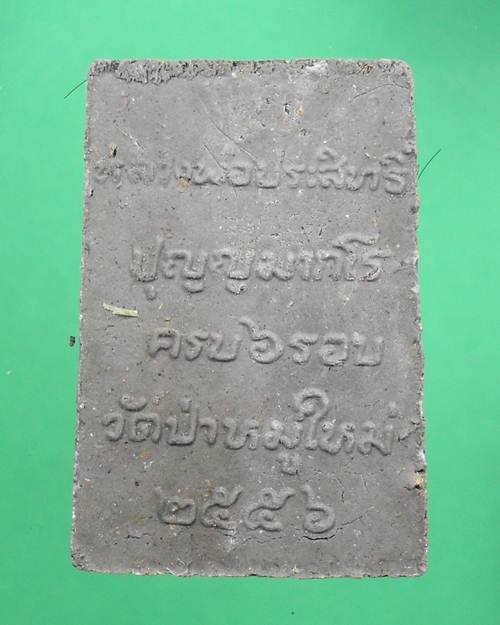 หลวงพ่อประสิทธิ์
ปุญฺญมากโร
ครบ๖รอบ
วัดป่าหมู่ใหม่
๒๕๕๖